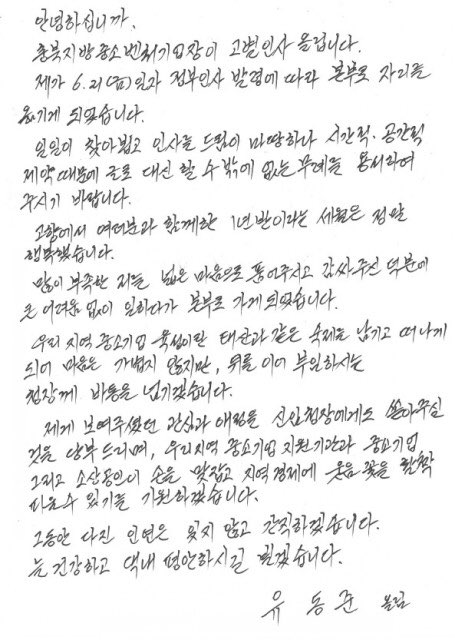 안녕하십니까.
충북지방중소벤처기업청장이 고별인사 올립니다.
제가 6.21(금)일자 정부인사 발령에 따라 본부로 자리를
옮기게 되었습니다.
일일이 찾아뵙고 인사를 드림이 마땅하나 시간적·공간적
제약때문에 글로 대신 할 수 밖에 없는 무례를 용서하여
주시기 바랍니다.
고향에서 여러분과 함께한 1년반이라는 세월은 정말
행복했습니다.
많이 부족한 저를 넓은 마음으로 품어주시고 감싸주신 덕분에
큰 어려움 없이 일하다가 본부로 가게 되었습니다.
우리 지역 중소기업 육성이란 태산과 같은 숙제를 남기고 떠나게
되어 마음은 가볍지 않지만, 뒤를 이어 부임하시는
청장께 바통을 넘기겠습니다.
제게 보여주셨던 관심과 애정을 신임청장에게도 쏟아주실
것을 당부 드리며, 우리지역 중소기업 지원기관과 중소기업
그리고 소상공인이 손을 맞잡고 지역경제에 웃음 꽃을 활짝
피울수 있기를 기원하겠습니다.
그동안 다진 인연은 잊지 않고 간직하겠습니다.
늘 건강하고 댁내 평안하시길 빌겠습니다.
유 동 준 올림